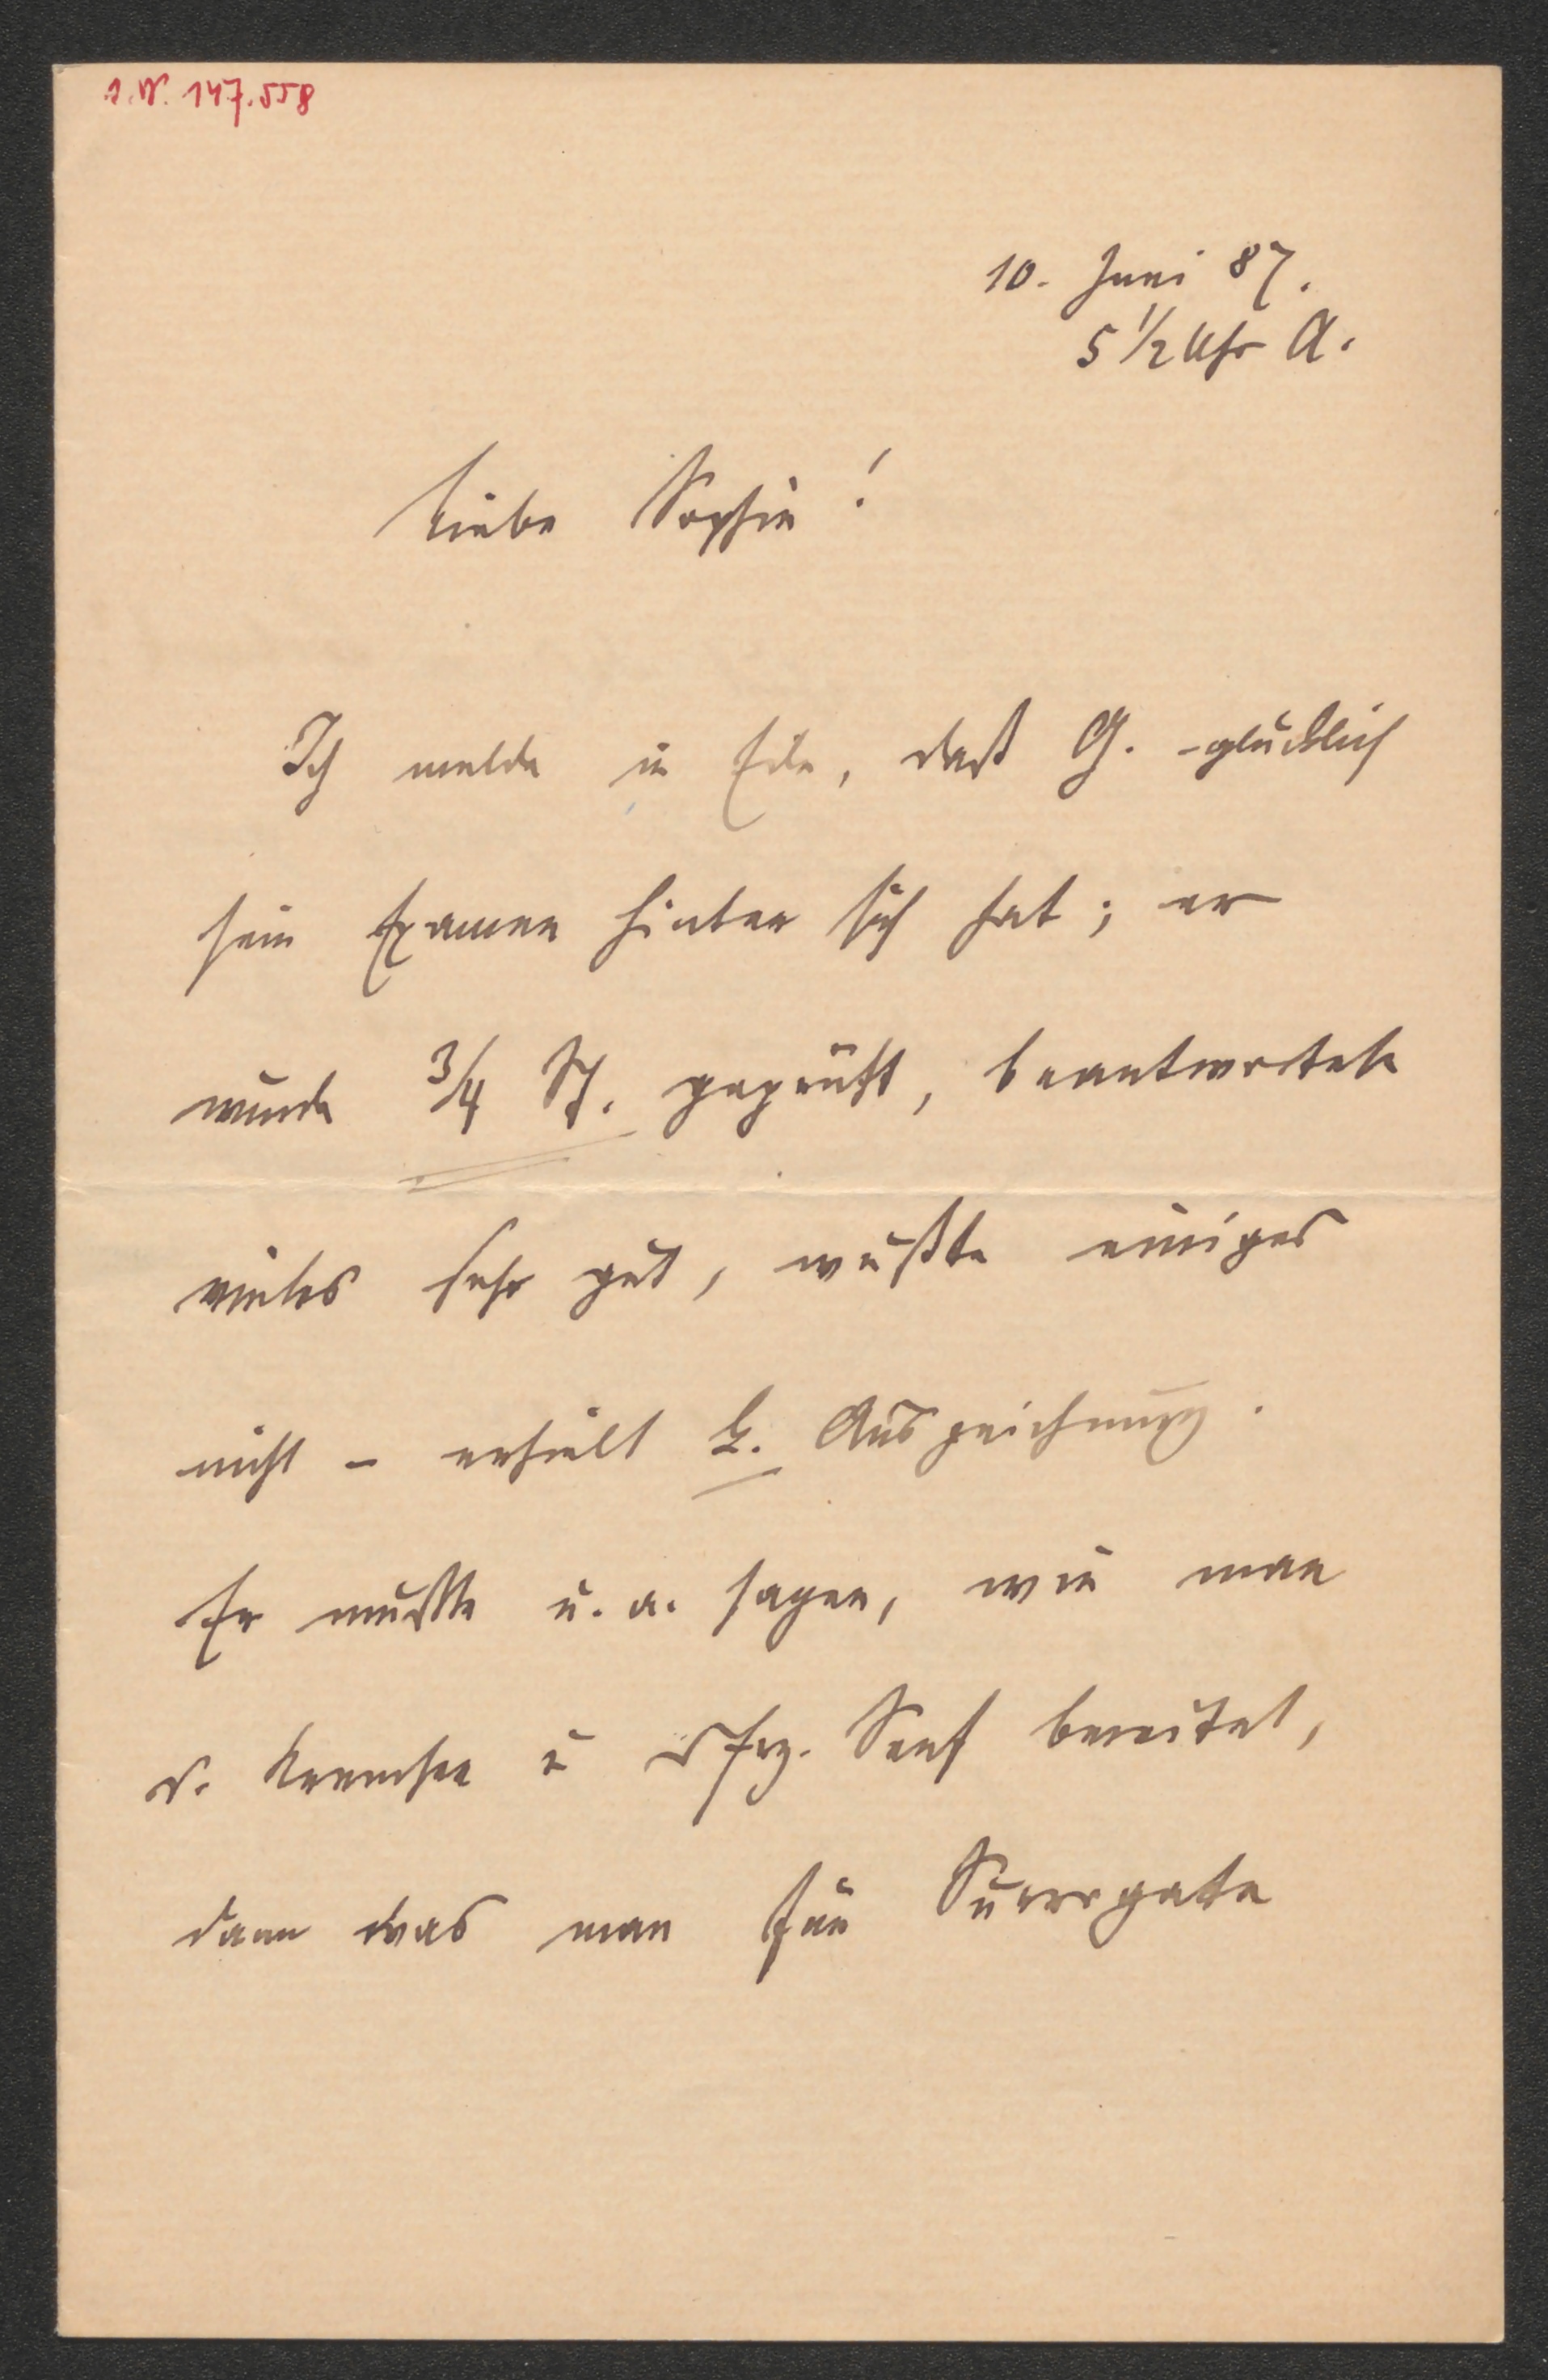 I.N. 147.558
10. Juni 87.
5 1/2 Uhr A.
Liebe Sophie!
Ich melde in Eile, daß G. glücklich
sein Examen hinter sich hat; er
wurde 3/4 St. geprüft, beantwortete
vieles sehr gut, wußte einiges
nicht – erhielt k. Auszeichnung.
Er mußte u. a. sagen, wie man
d. Kremser u Senf bereitet,
dann was man für Surrogate